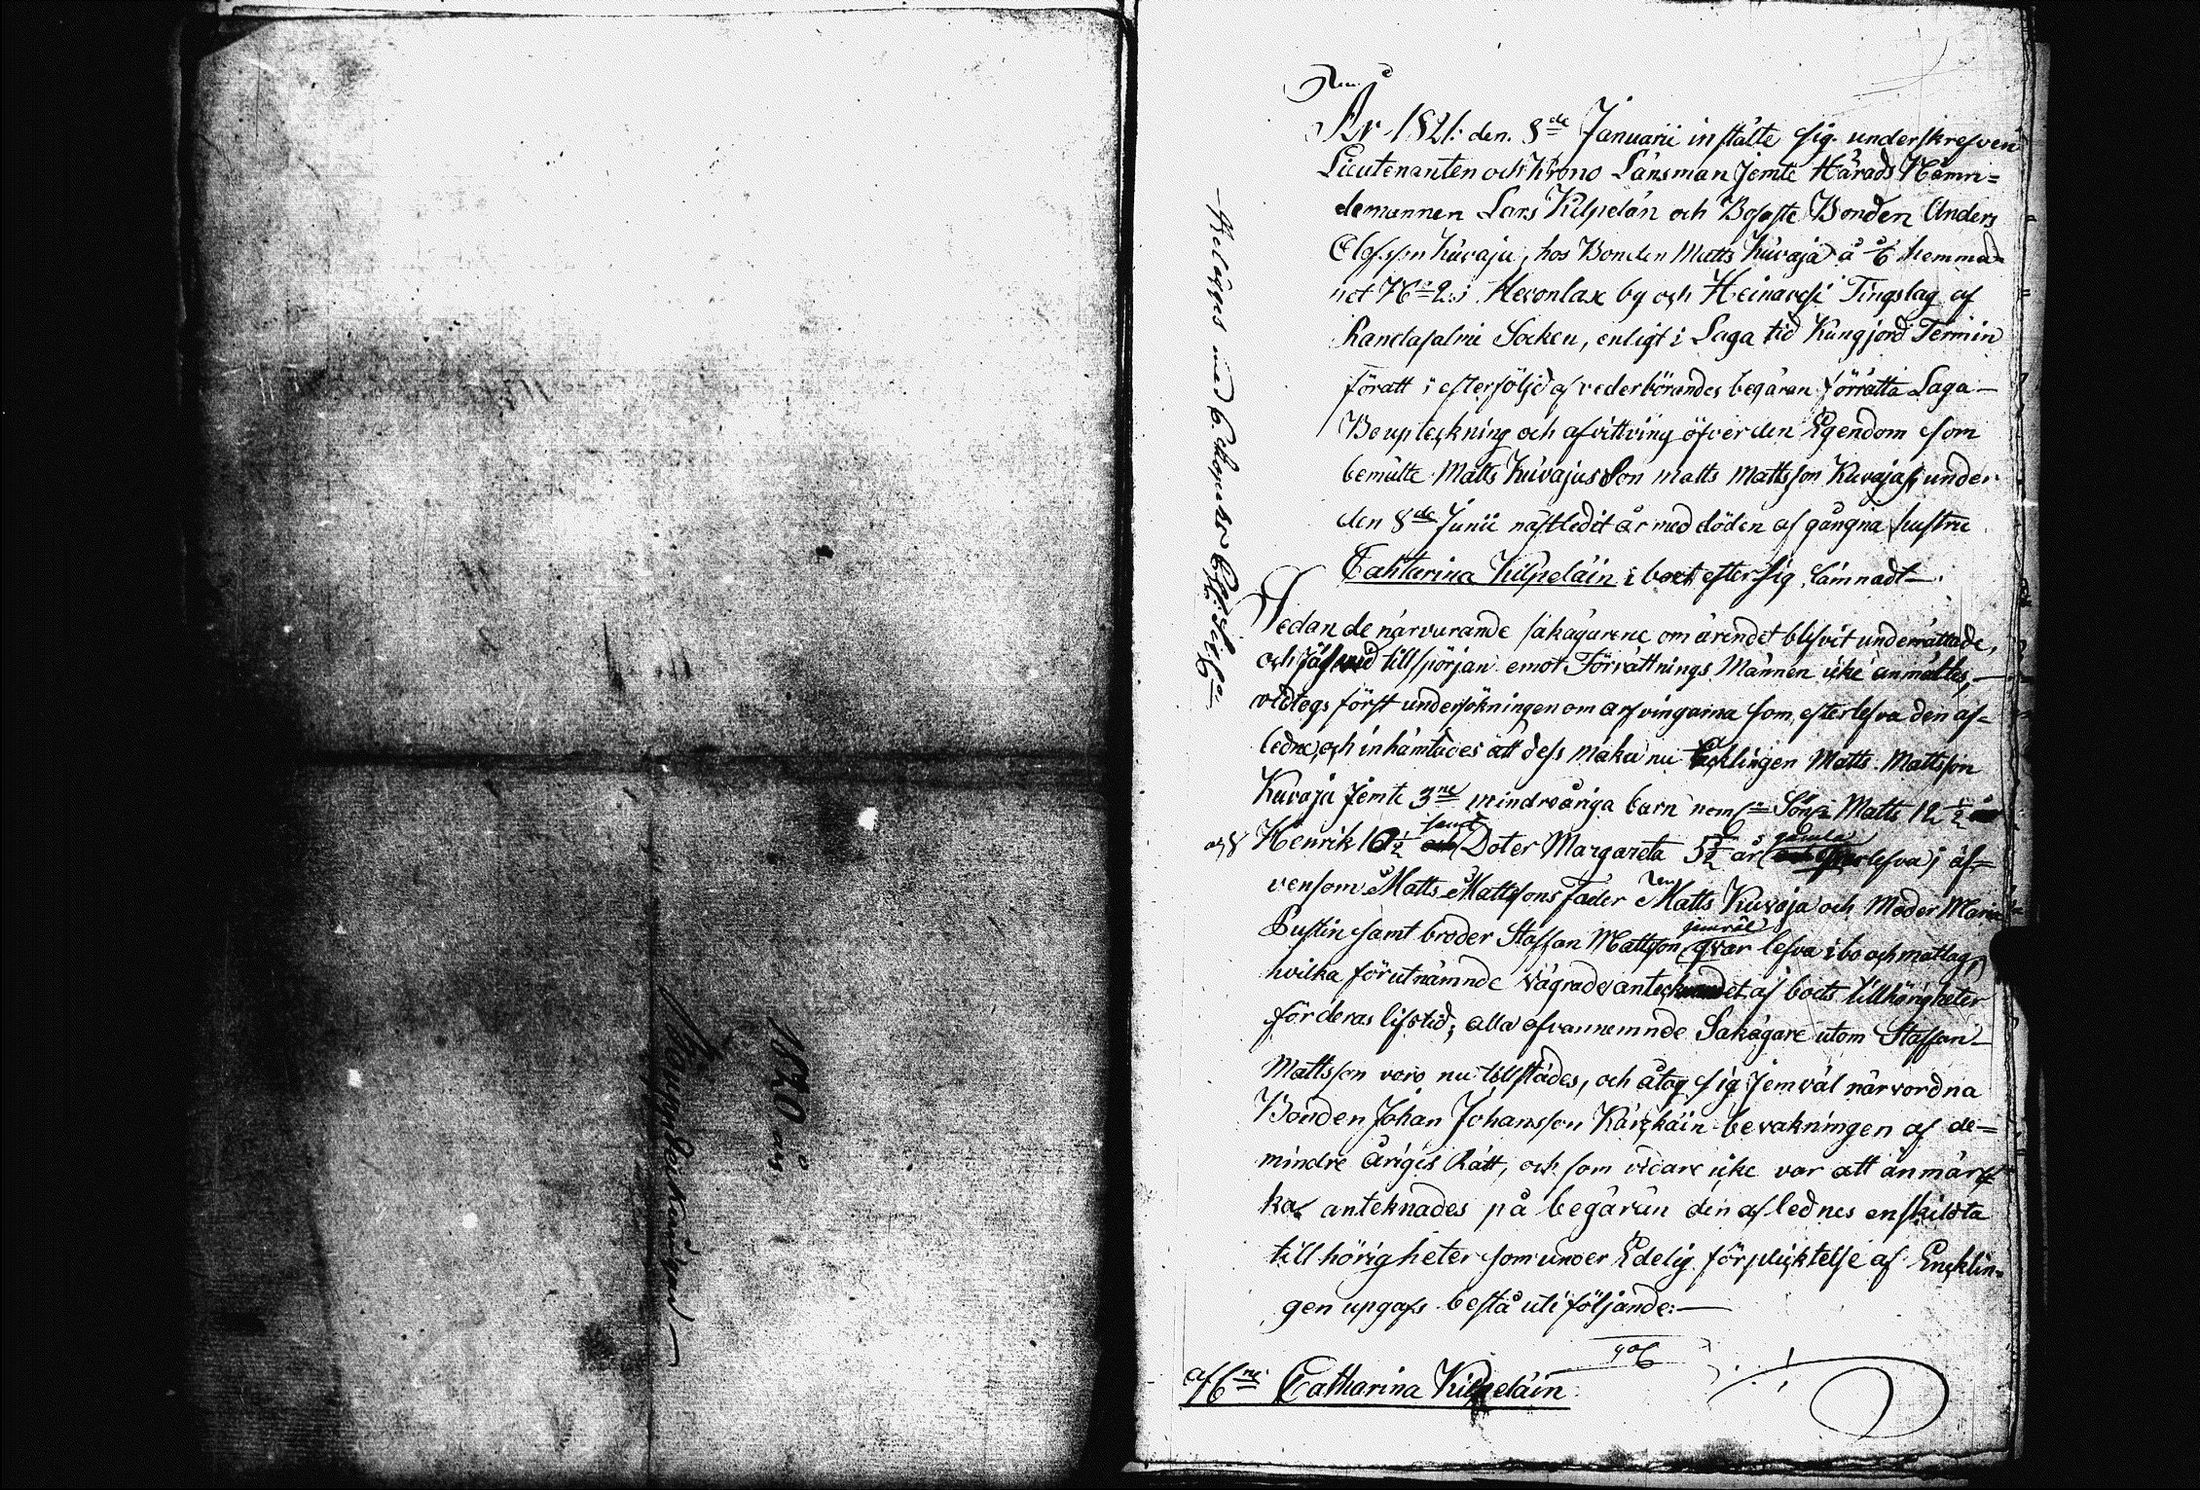 1820 års
År 1821. den 8de Januarii instälte sig underskrefven
Lieutenanten och Krono Länsman jemte Härads Nämn=
demannen Lars Kilpelän och Bofaste Bonden Anders
Olofsson Kuvaja, hos Bonden Matts Kuvaja å hemma=
net No 2 i Heronlax by och Heinavesi Tingslag af
Randasalmi Socken, enligt i Laga tid Kungjord Termin
föratt i efterföljd af vederbörandes begäran förrätta Laga
Boupteckning och afvittring öfver den Egendom som
bemälte Matts Kuvajas Son Matts Mattsson Kuvajas under
den 8de Junii nästledit år med döden af gångna hustru
Catharina Kilpeläin i boet efter sig lämnadt.
Sedan de närvarande sakägarene om ärendet blifvit underrättade,
och jäf vid tillspörjan emot Förrättnings Männen icke anmältes,
vidtogs först undersökningen om arfvingarna som efterlefva den af=
ledne, och inhämtades att dess maka nu Encklingen Matts Mattsson
Kuvaja jemte 3ne mindreåriga barn neml. Söner Matts 12 ½
och Henrik 10 ½ samt Doter Margareta 5 ½ år gamla efterlefva; äf=
vensom Matts Mattssons Fader Matts Kuvaja och Moder Maria
Pustin samt broder Staffan Mattsson jemväl qvar lefva i bo och matlag,
hvilka förutnämnde vägrade antecknandet af boets tillhörigheter
för deras lifstid; alla ofvannemnde Sakägare utom Staffan
Mattsson voro nu tillstädes, och åtog sig jemväl närvordna
Bonden Johan Johansson Kärkäin bevakningen af de=
mindre årigas Rätt, och som vidare icke var att anmär
ka, anteknades på begäran den aflednes enskildta
tillhörigheter som under Edelig förplicktelse af Encklin=
gen upgafs bestå uti följande:
afl.ne Catharina Kilpeläin